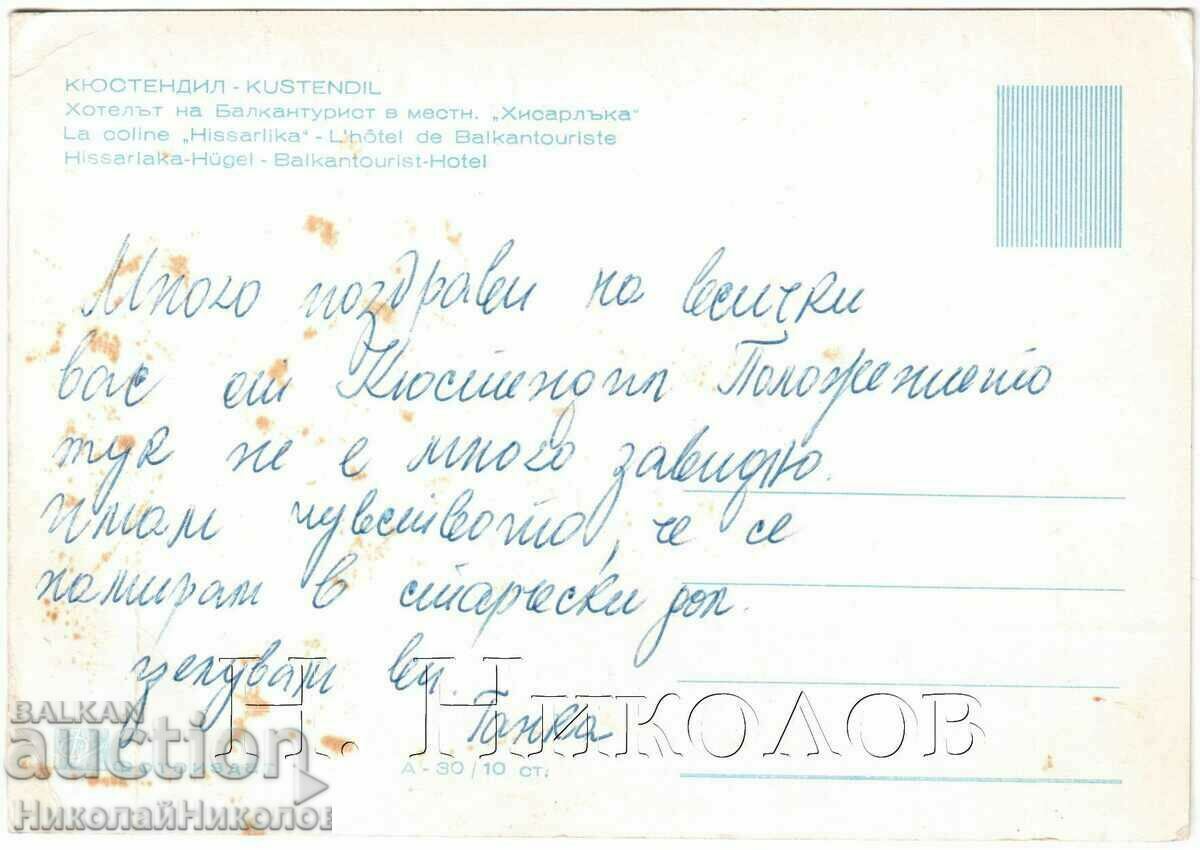 КЮСТЕНДИЛ - KUSTENDIL
Хотелът на Балкантурист в местн. „Хисарлъка“
La coline „Hissarlika“ - L'hôtel de Balkantouriste
Hissarlaka-Hügel - Balkantourist-Hotel
Много поздрави на всички
вас от Кюстендил Положението
тук не е много завидно.
Имам чувството, че се
намирам в старчески дом.
Целувам ви.
Ганка
Н. Николов
BALKAN
auction
Фотоиздат
А - 30 / 10 ст.
НиколайНиколов